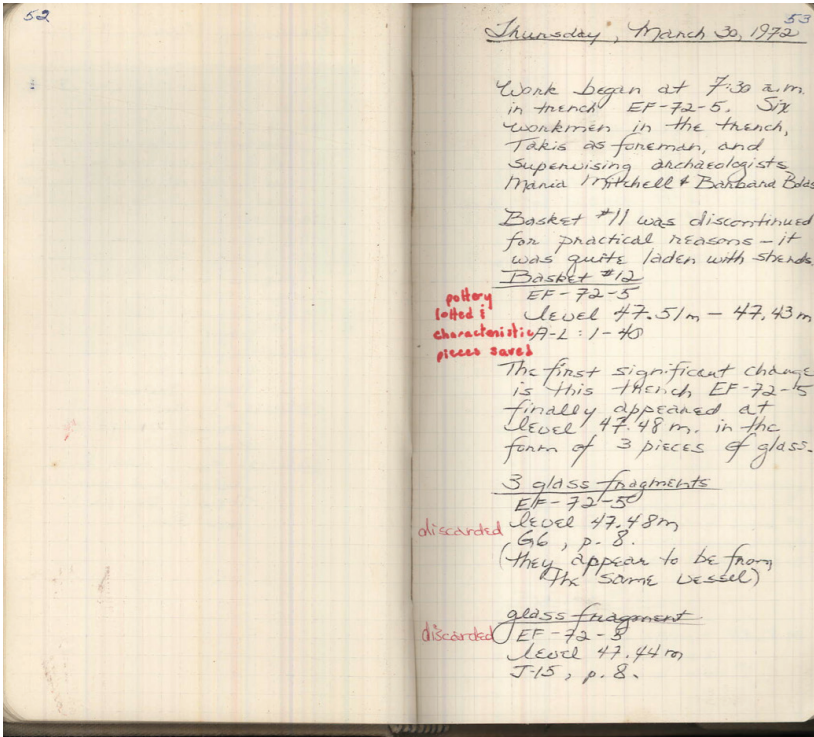 52
53
Thursday, March 30, 1972
Work began at 7:30 a.m.
in trench EF-72-5. Six
workmen in the trench,
Takis as foreman, and
supervising archaeologists
Maria Mitchell & Barbara
Basket #11 was discontinued
for practical reasons – it
was quite laden with sherds.
Basket #12
EF-72-5
level 47.51m – 47.43m
A-L : 1-40
pottery
lotted &
characteristic
pieces saved
The first significant change
is this trench EF-72-5
finally appeared at
level 47.48 m. in the
form of 3 pieces of glass.
3 glass fragments
EF-72-5
level 47.48m
G6, p. 8.
(they appear to be from
the same vessel)
discarded
glass fragment
EF-72-5
level 47.44m
J-15, p. 8.
discarded